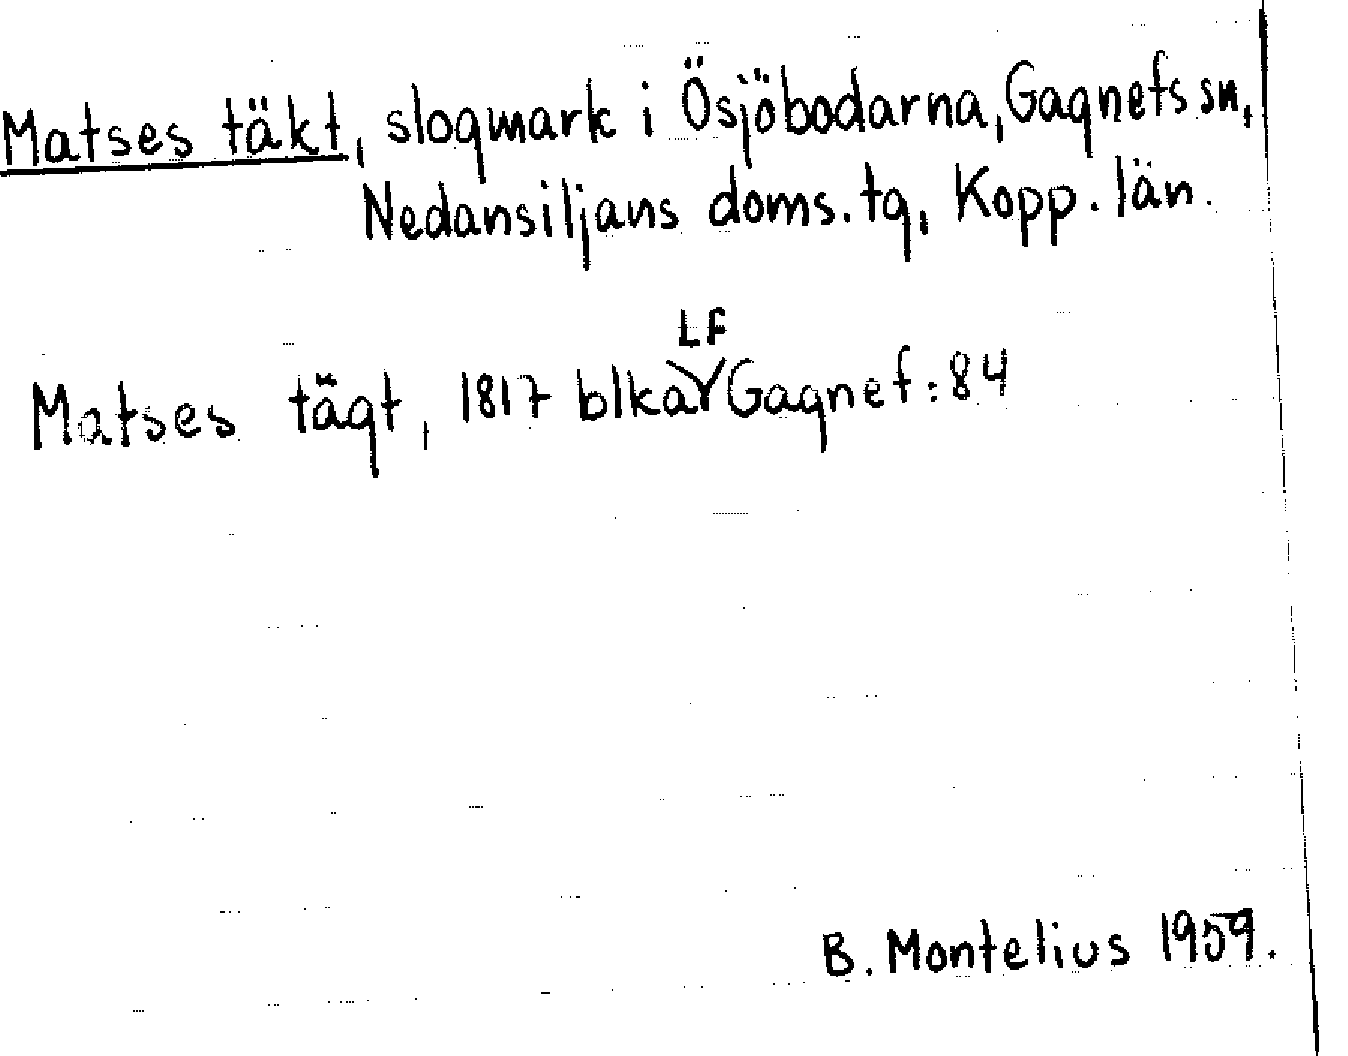 Matses täkt, slogmark i Ösjöbodarna, Gagnefs sn,
Nedansiljans doms. tg, Kopp. län.
LF
Matses tägt, 1817 blka Gagnef: 84
B. Montelius 1959.